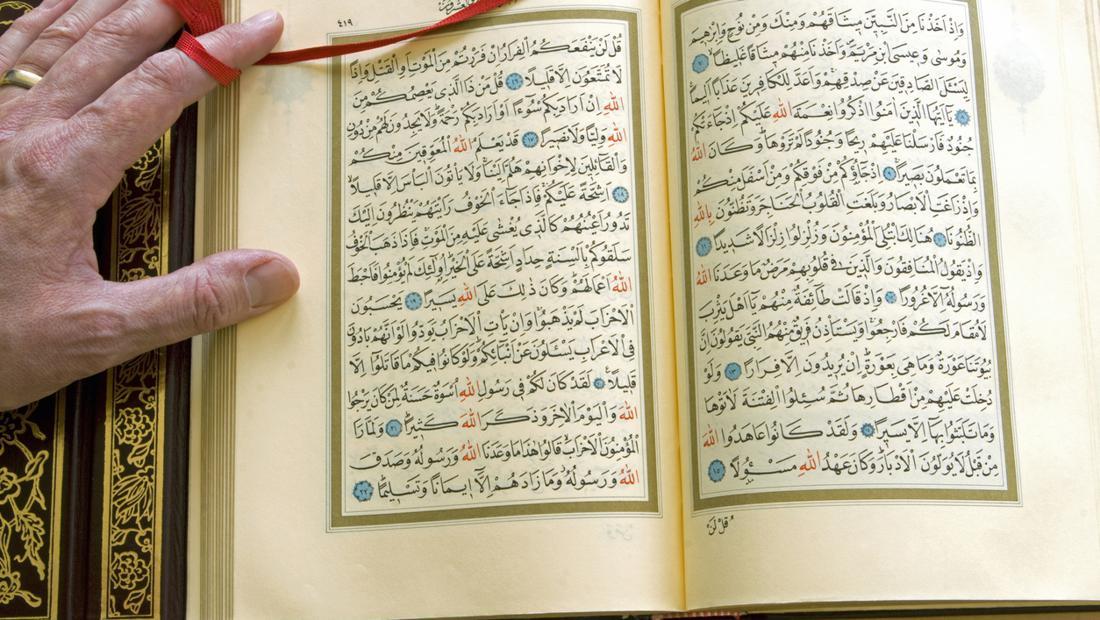 وَاِذْ اَخَذْنَا مِنَ النَّبِيّٖنَ مٖيثَاقَهُمْ وَمِنْكَ وَمِنْ نُوحٍ وَاِبْرٰهٖيمَ
وَمُوسٰى وَعٖيسَى ابْنِ مَرْيَمَ وَاَخَذْنَا مِنْهُمْ مٖيثَاقًا غَلٖيظًا ٧
لِيَسْـَٔلَ الصَّادِقٖينَ عَنْ صِدْقِهِمْ وَاَعَدَّ لِلْكَافِرٖينَ عَذَابًا اَلٖيمًا
٨ يَٓا اَيُّهَا الَّذٖينَ اٰمَنُوا اذْكُرُوا نِعْمَةَ اللّٰهِ عَلَيْكُمْ اِذْ جَٓاءَتْكُمْ
جُنُودٌ فَاَرْسَلْنَا عَلَيْهِمْ رٖيحًا وَجُنُودًا لَمْ تَرَوْهَا وَكَانَ اللّٰهُ
بِمَا تَعْمَلُونَ بَصٖيرًا ٩ اِذْ جَٓاؤُكُمْ مِنْ فَوْقِكُمْ وَمِنْ اَسْفَلَ مِنْكُمْ
وَاِذْ زَاغَتِ الْاَبْصَارُ وَبَلَغَتِ الْقُلُوبُ الْحَنَاجِرَ وَتَظُنُّونَ بِاللّٰهِ
الظُّنُونَا ١٠ هُنَالِكَ ابْتُلِيَ الْمُؤْمِنُونَ وَزُلْزِلُوا زِلْزَالًا شَدٖيدًا ١١
وَاِذْ يَقُولُ الْمُنَافِقُونَ وَالَّذٖينَ فٖي قُلُوبِهِمْ مَرَضٌ مَا وَعَدَنَا اللّٰهُ
وَرَسُولُهُٓ اِلَّا غُرُورًا ١٢ وَاِذْ قَالَتْ طَٓائِفَةٌ مِنْهُمْ يَٓا اَهْلَ يَثْرِبَ
لَا مُقَامَ لَكُمْ فَارْجِعُوا وَيَسْتَأْذِنُ فَرٖيقٌ مِنْهُمُ النَّبِيَّ يَقُولُونَ اِنَّ
بُيُوتَنَا عَوْرَةٌ وَمَا هِيَ بِعَوْرَةٍ اِنْ يُرٖيدُونَ اِلَّا فِرَارًا ١٣ وَلَوْ
دُخِلَتْ عَلَيْهِمْ مِنْ اَقْطَارِهَا ثُمَّ سُئِلُوا الْفِتْنَةَ لَاٰتَوْهَا
وَمَا تَلَبَّثُوا بِهَٓا اِلَّا يَسٖيرًا ١٤ وَلَقَدْ كَانُوا عَاهَدُوا اللّٰهَ
مِنْ قَبْلُ لَا يُوَلُّونَ الْاَدْبَارَ وَكَانَ عَهْدُ اللّٰهِ مَسْؤُلًا ١٥
قُلْ لَنْ
٤١٩
قُلْ لَنْ يَنْفَعَكُمُ الْفِرَارُ اِنْ فَرَرْتُمْ مِنَ الْمَوْتِ اَوِ الْقَتْلِ وَاِذًا
لَا تُمَتَّعُونَ اِلَّا قَلٖيلًا ١٦ قُلْ مَنْ ذَا الَّذٖي يَعْصِمُكُمْ مِنَ
اللّٰهِ اِنْ اَرَادَ بِكُمْ سُٓوءًا اَوْ اَرَادَ بِكُمْ رَحْمَةً وَلَا يَجِدُونَ لَهُمْ مِنْ دُونِ
اللّٰهِ وَلِيًّا وَلَا نَصٖيرًا ١٧ قَدْ يَعْلَمُ اللّٰهُ الْمُعَوِّقٖينَ مِنْكُمْ
وَالْقَٓائِلٖينَ لِاِخْوَانِهِمْ هَلُمَّ اِلَيْنَا وَلَا يَأْتُونَ الْبَأْسَ اِلَّا قَلٖيلًا
١٨ اَشِحَّةً عَلَيْكُمْ فَاِذَا جَٓاءَ الْخَوْفُ رَاَيْتَهُمْ يَنْظُرُونَ اِلَيْكَ
تَدُورُ اَعْيُنُهُمْ كَالَّذٖي يُغْشٰى عَلَيْهِ مِنَ الْمَوْتِ فَاِذَا ذَهَبَ الْخَوْفُ
سَلَقُوكُمْ بِاَلْسِنَةٍ حِدَادٍ اَشِحَّةً عَلَى الْخَيْرِ اُولٰٓئِكَ لَمْ يُؤْمِنُوا فَاَحْبَطَ
اللّٰهُ اَعْمَالَهُمْ وَكَانَ ذٰلِكَ عَلَى اللّٰهِ يَسٖيرًا ١٩ يَحْسَبُونَ
الْاَحْزَابَ لَمْ يَذْهَبُوا وَاِنْ يَأْتِ الْاَحْزَابُ يَوَدُّوا لَوْ اَنَّهُمْ بَادُونَ
فِي الْاَعْرَابِ يَسْـَٔلُونَ عَنْ اَنْبَٓائِكُمْ وَلَوْ كَانُوا فٖيكُمْ مَا قَاتَلُٓوا اِلَّا
قَلٖيلًا ٢٠ لَقَدْ كَانَ لَكُمْ فٖي رَسُولِ اللّٰهِ اُسْوَةٌ حَسَنَةٌ لِمَنْ كَانَ يَرْجُوا
اللّٰهَ وَالْيَوْمَ الْاٰخِرَ وَذَكَرَ اللّٰهَ كَثٖيرًا ٢١ وَلَمَّا رَاَ
الْمُؤْمِنُونَ الْاَحْزَابَ قَالُوا هٰذَا مَا وَعَدَنَا اللّٰهُ وَرَسُولُهُ وَصَدَقَ
اللّٰهُ وَرَسُولُهُ وَمَا زَادَهُمْ اِلَّٓا اٖيمَانًا وَتَسْلٖيمًا ٢٢